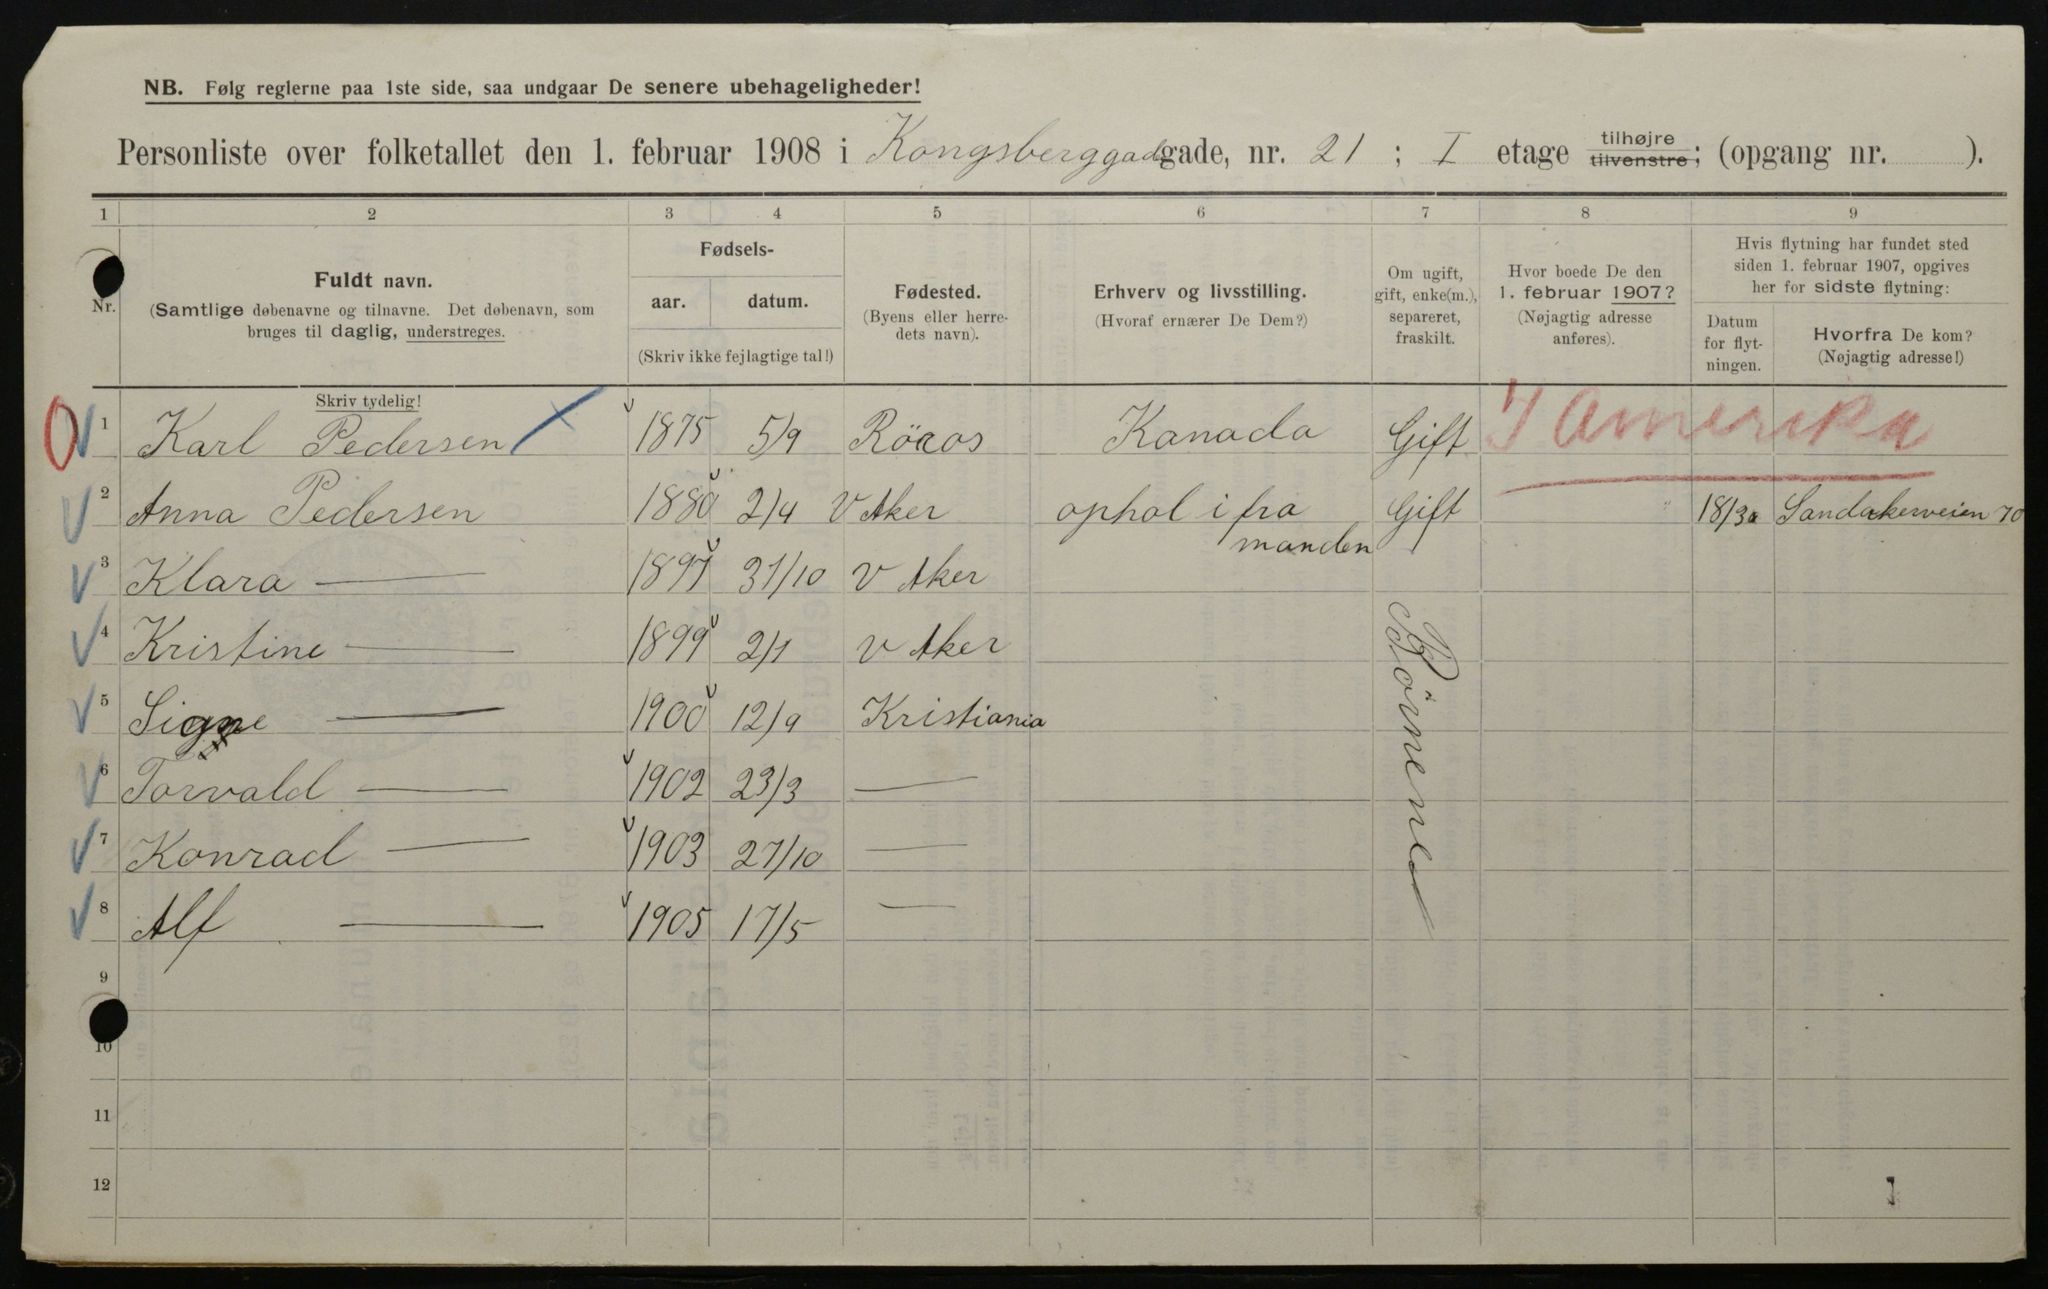 NB. Følg reglerne paa 1ste side, saa undgaar De senere ubehageligheder!
Personliste over folketallet den 1. februar 1908 i Kongsberggadegade, nr. 21 ; I etage tilhøjre tilvenstre; (opgang nr. ).
1 2 3 4 5 6 7 8 9
Nr.
Fuldt navn.
(Samtlige døbenavne og tilnavne. Det døbenavn, som
bruges til daglig, understreges.
Fødsels-
aar. datum.
(Skriv ikke fejlagtige tal!)
Fødested.
(Byens eller herre-
dets navn).
Erhverv og livsstilling.
(Hvoraf ernærer De Dem?)
Om ugift,
gift, enke(m.),
separeret,
fraskilt.
Hvor boede De den
1. februar 1907?
(Nøjagtig adresse
anføres).
Hvis flytning har fundet sted
siden 1. februar 1907, opgives
her for sidste flytning:
Datum
for flyt-
ningen.
Hvorfra De kom?
(Nøjagtig adresse!)
Skriv tydelig!
1 Karl Pedersen 1875 5/9 Röaos Kanada Gift I Amerika
2 Anna Pedersen 1880 2/4 V Aker ophol i fra Gift Sandakerveien 70
manden
3 Klara — 1897 31/10 V Aker
4 Kristine — 1899 2/1 V Aker
5 Signe — 1900 12/9 Kristiania
6 Torvald — 1902 23/3 —
7 Konrad — 1903 27/10 —
8 Alf — 1905 17/5 —
Börnene
9
10
11
12
1